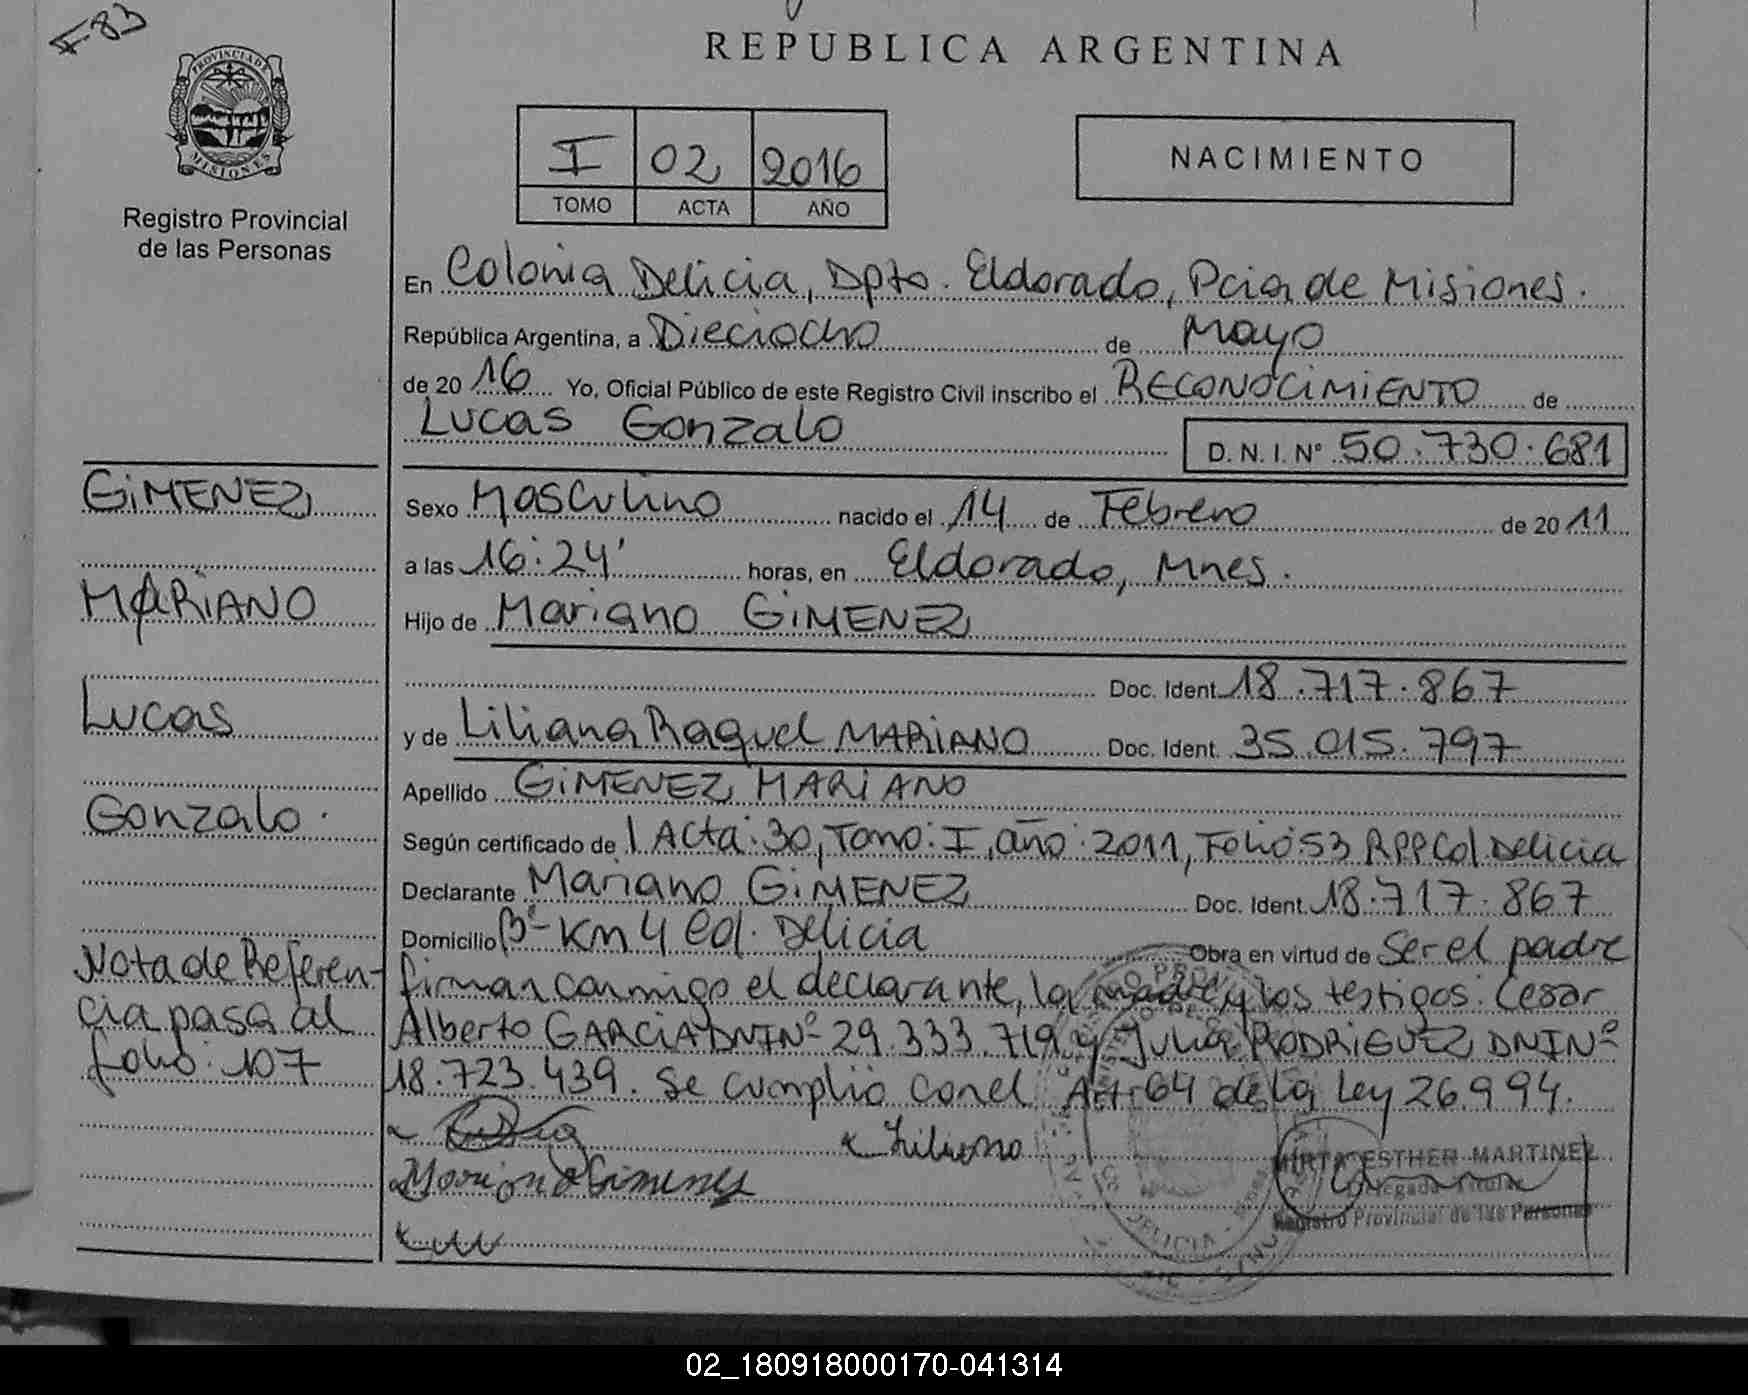 F-83
PROVINCIA DE
MISIONES
Registro Provincial
de las Personas
REPUBLICA ARGENTINA
I 02 2016
TOMO ACTA AÑO
NACIMIENTO
En Colonia Delicia, Dpto. Eldorado, Pcia de Misiones.
República Argentina, a Dieciocho de Mayo
de 20 16 Yo, Oficial Público de este Registro Civil inscribo el RECONOCIMIENTO de
Lucas Gonzalo D. N. I. Nº 50.730.681
Sexo Masculino nacido el 14 de Febrero de 20 11
a las 16:24' horas, en Eldorado, Mnes.
Hijo de Mariano GIMENEZ
Doc. Ident. 18.717.867
y de Liliana Raquel MARIANO Doc. Ident. 35.015.797
Apellido GIMENEZ MARIANO
Según certificado de l Acta: 30, Tomo: I, año: 2011, Folio 53 RPP Col Delicia
Declarante Mariano GIMENEZ Doc. Ident. 18.717.867
Domicilio Bº Km 4 Col. Delicia Obra en virtud de Ser el padre
firman conmigo el declarante, la madre y los testigos: Cesar
Alberto GARCIA DNI Nº 29.333.719 y Julia RODRIGUEZ DNI Nº
18.723.439. Se cumplió con el Art. 64 de la Ley 26.994.
Liliana
Mariano Gimenez
MIRTA ESTHER MARTINEZ
Delegada Titular
Registro Provincial de las Personas
GIMENEZ
MARIANO
Lucas
Gonzalo.
Nota de Referen-
cia pasa al
folio: 107
02_180918000170-041314